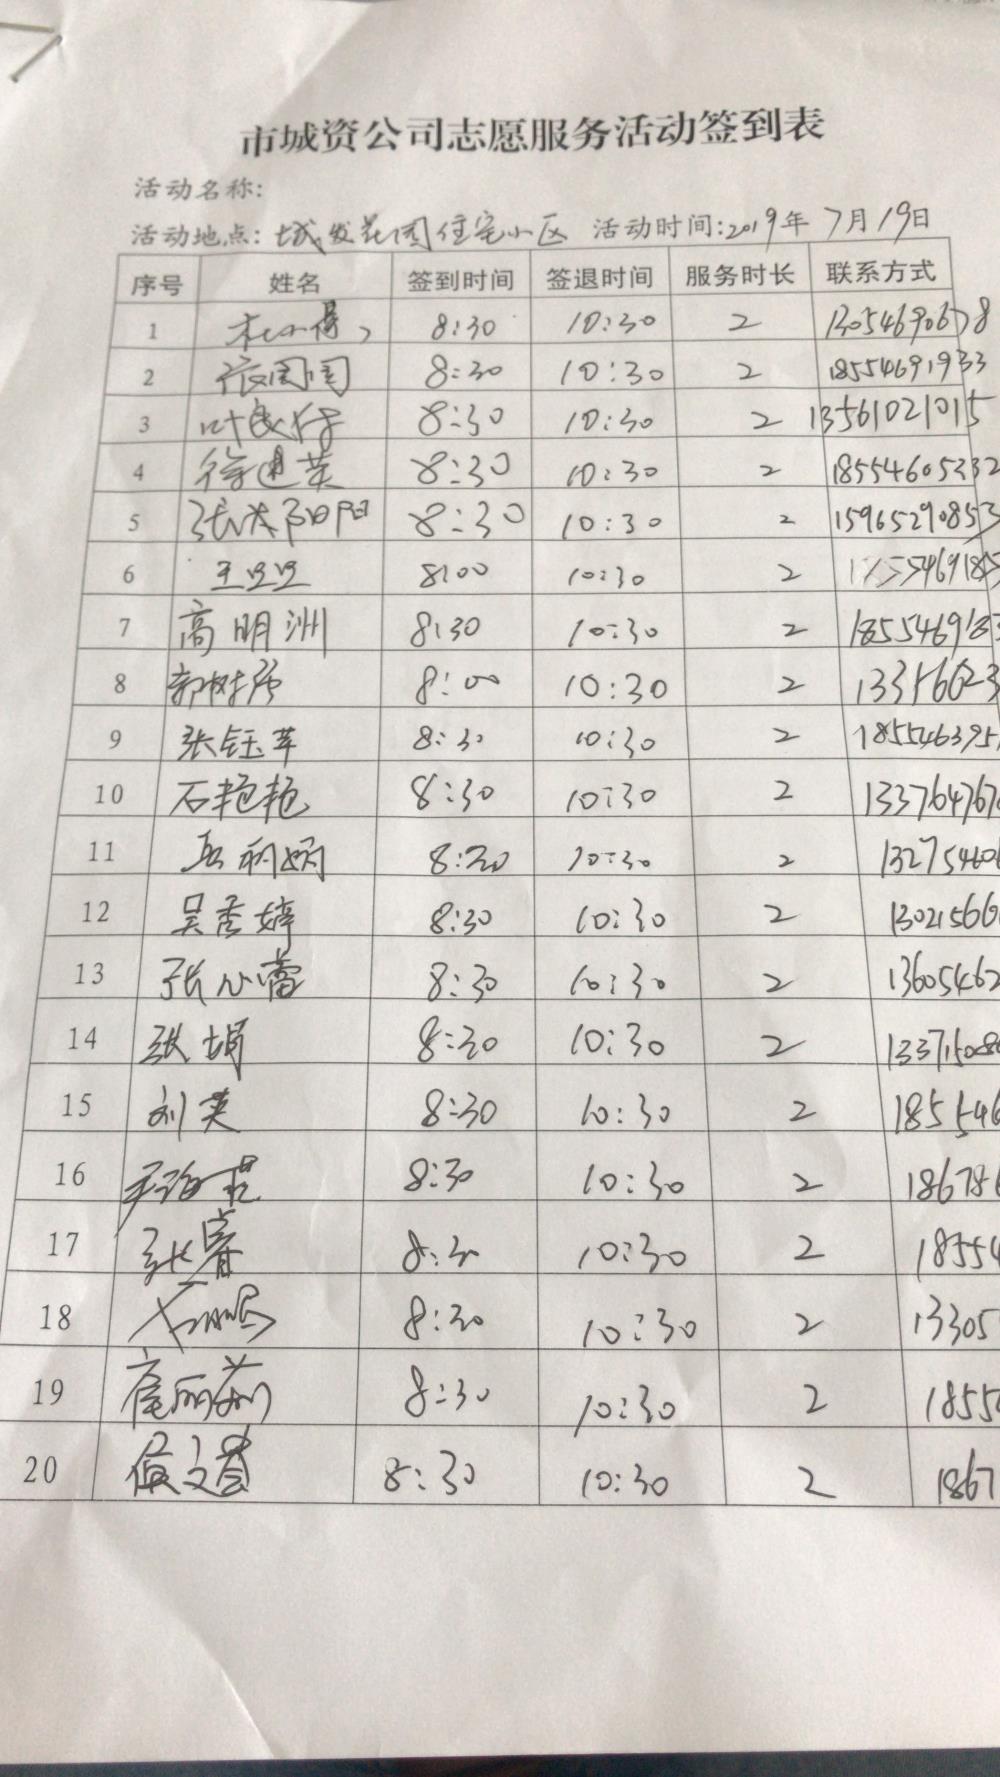 市城资公司志愿服务活动签到表
活动名称:
活动地点: 城发花园住宅小区 活动时间:2019年7月19日
序号 姓名 签到时间 签退时间 服务时长 联系方式
1 8:30 10:30 2 13054690678
2 8:30 10:30 2 18554691933
3 8:30 10:30 2 13561021015
4 徐建英 8:30 10:30 2 18554605332
5 8:30 10:30 2 15965290853
6 8:00 10:30 2
7 高明洲 8:30 10:30 2
8 郭树彦 8:00 10:30 2
9 张钰苹 8:30 10:30 2 1855463951
10 石艳艳 8:30 10:30 2 133764767
11 8:30 10:30 2 13275460
12 吴秀婷 8:30 10:30 2 13021566
13 张心蕾 8:30 10:30 2 13605462
14 张娟 8:30 10:30 2 13371508
15 刘英 8:30 10:30 2 185546
16 8:30 10:30 2 186786
17 张睿 8:30 10:30 2 18554
18 8:30 10:30 2 13305
19 8:30 10:30 2 1855
20 8:30 10:30 2 1867